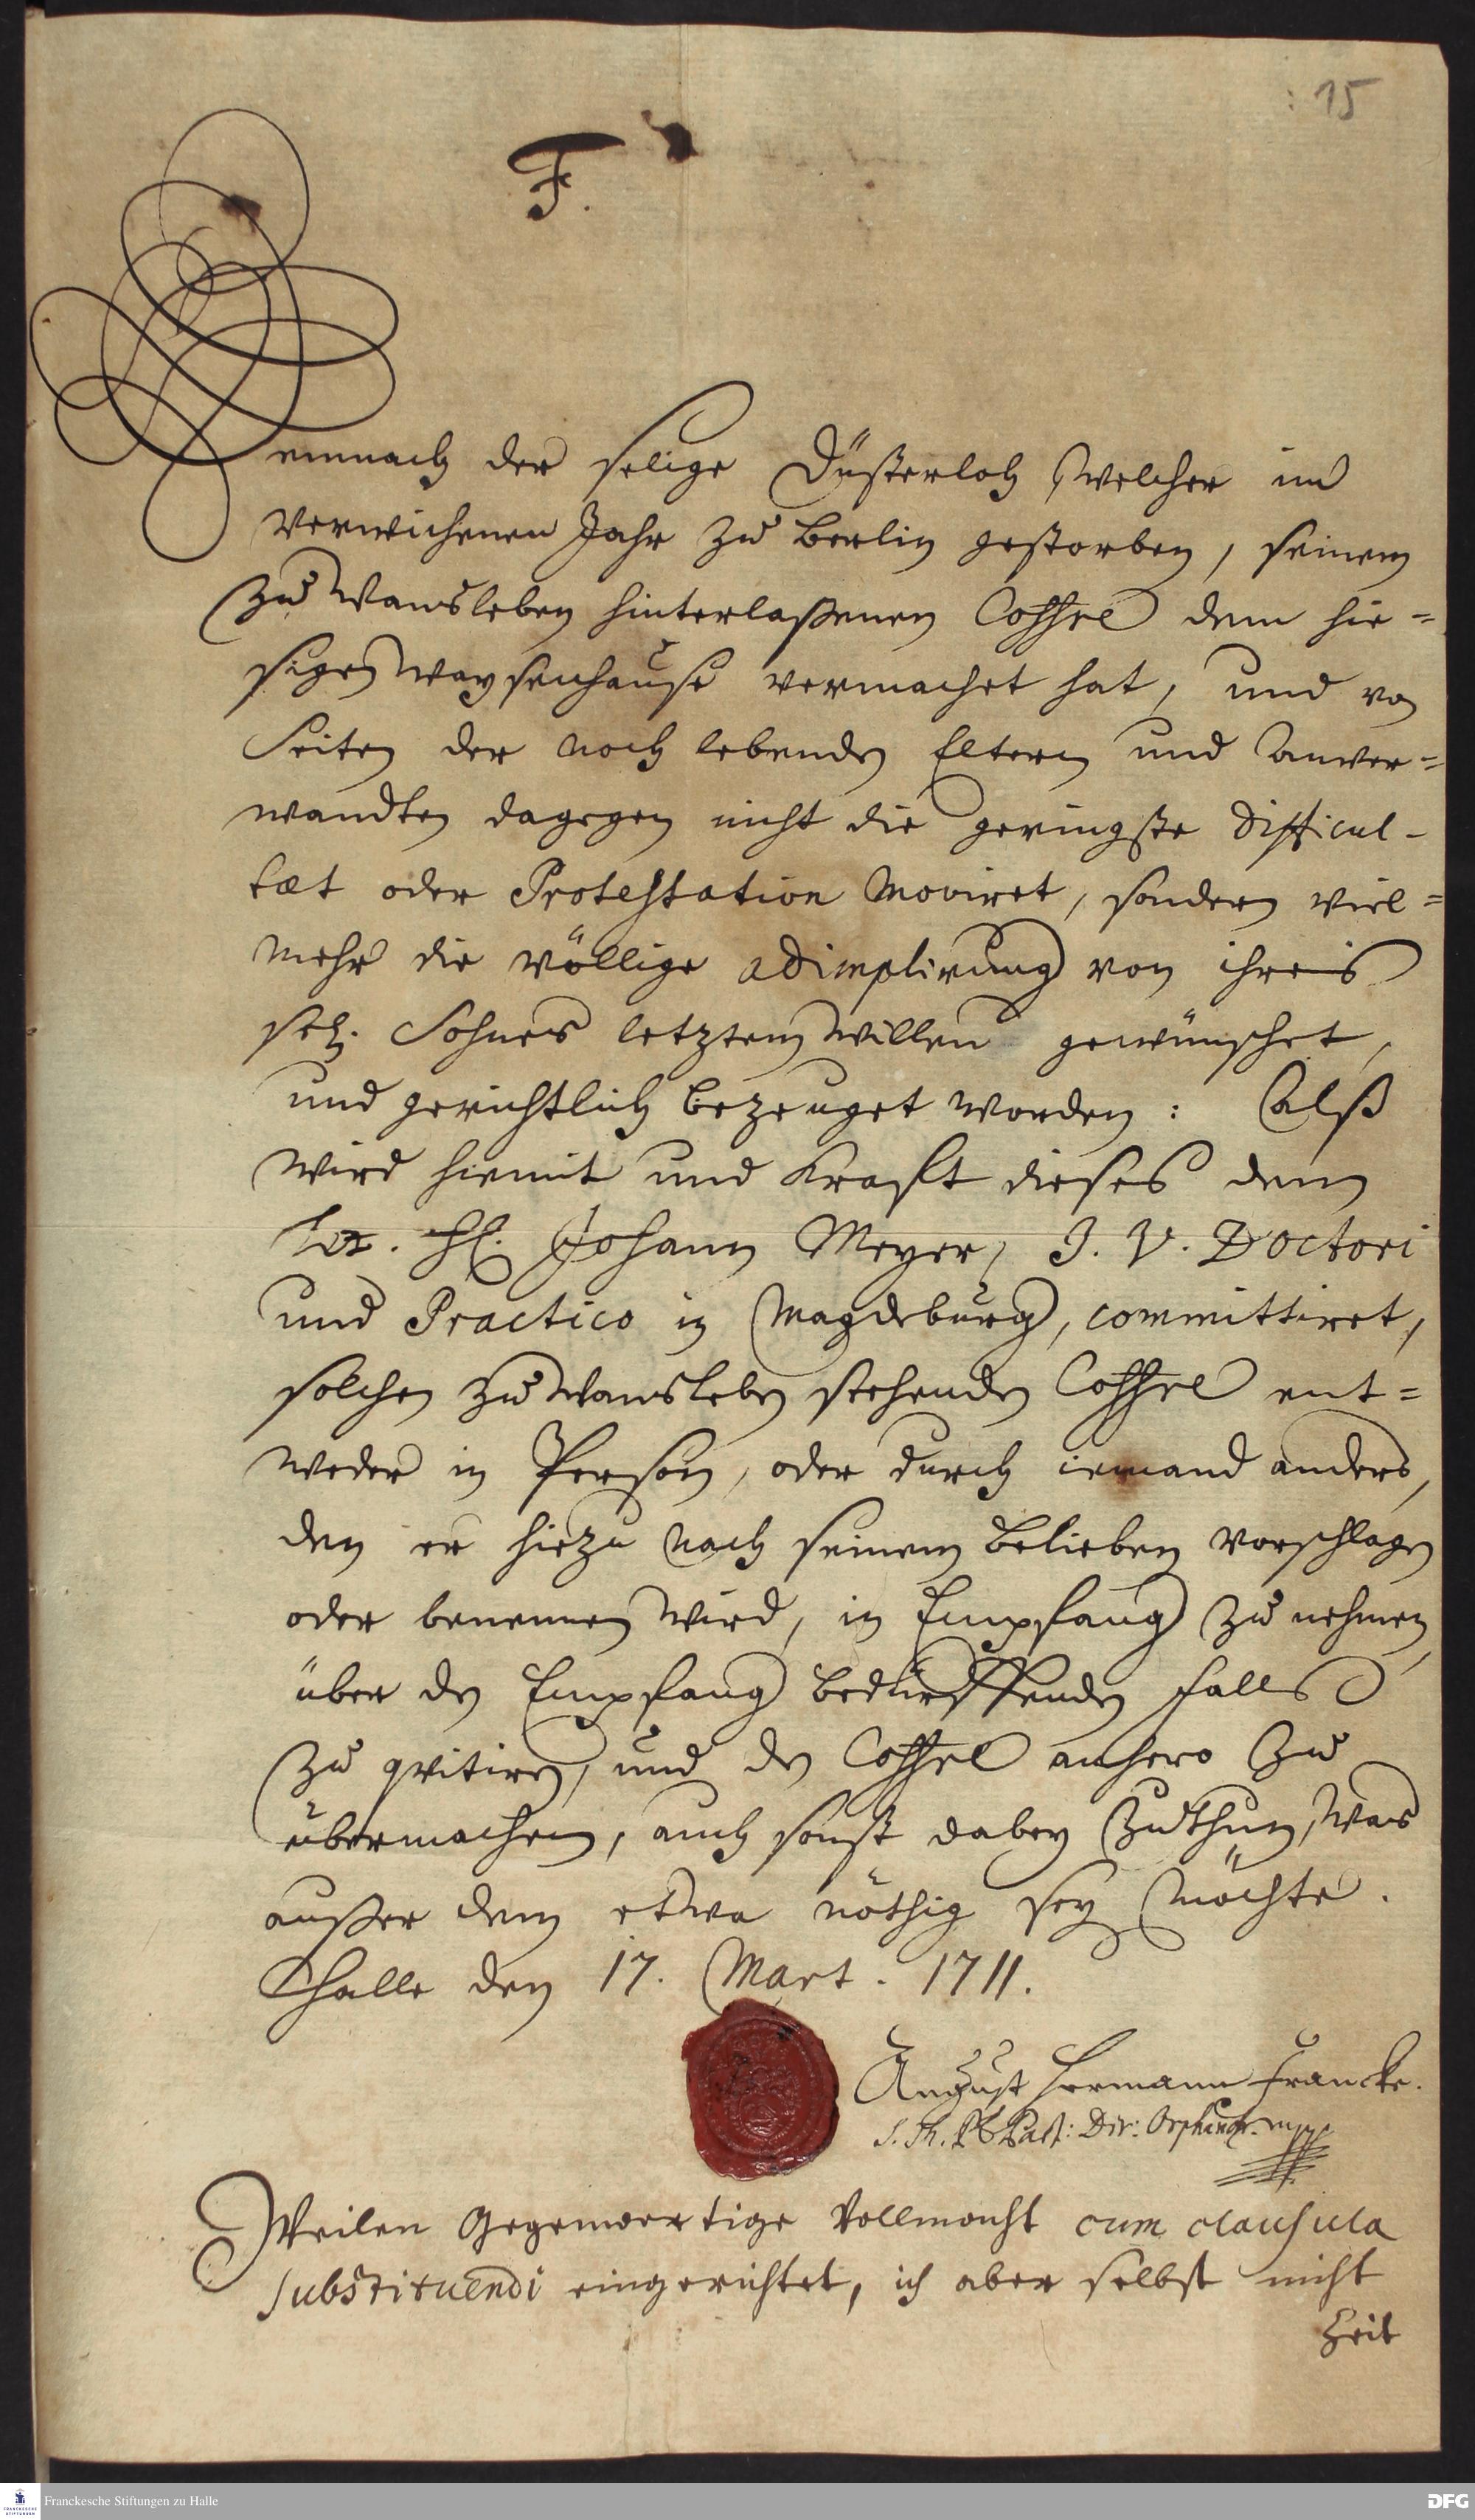 15
F.
Demnach der selige Düsterloh, welcher im
verwichenen Jahr zu Berlin gestorben, seinen
zu Wansleben hinterlaßenen Coffre dem hie=
sigen Waysenhause vermachet hat, und von
Seiten der noch lebenden Eltern und Anver=
wandten dagegen nicht die geringste difficul-
tæt oder Protestation moviret, sondern viel=
mehr die völlige adimplirung von ihres
sel. Sohnes letztem willen gewünschet,
und gerichtlich bezeuget worden: Alß
wird hiemit und Krafft dieses dem
Tit. H. Johann Meyer, J. V. Doctori
und Practico in Magdeburg, committiret,
solchen zu Wansleben stehenden Coffre ent=
weder in Person, oder durch iemand anders,
den er hiezu nach seinem Belieben vorschlagen
oder benennen wird, in Empfang zu nehmen,
über den Empfang bedürffenden falls
zu qvitiren, und den Coffre anhero zu
übermachen, auch sonst dabey zuthun, was
außer dem etwa nöthig seyn möchte.
Halle den 17. Mart. 1711.
August Hermann Francke.
S. Th. P. & Past: Dir: Orphanotr. mppr
Weilen Gegenwertige Vollmacht cum clausula
substituendi eingerichtet, ich aber selbst nicht
Zeit
FRANCKESCHE STIFTUNGEN
Franckesche Stiftungen zu Halle
DFG